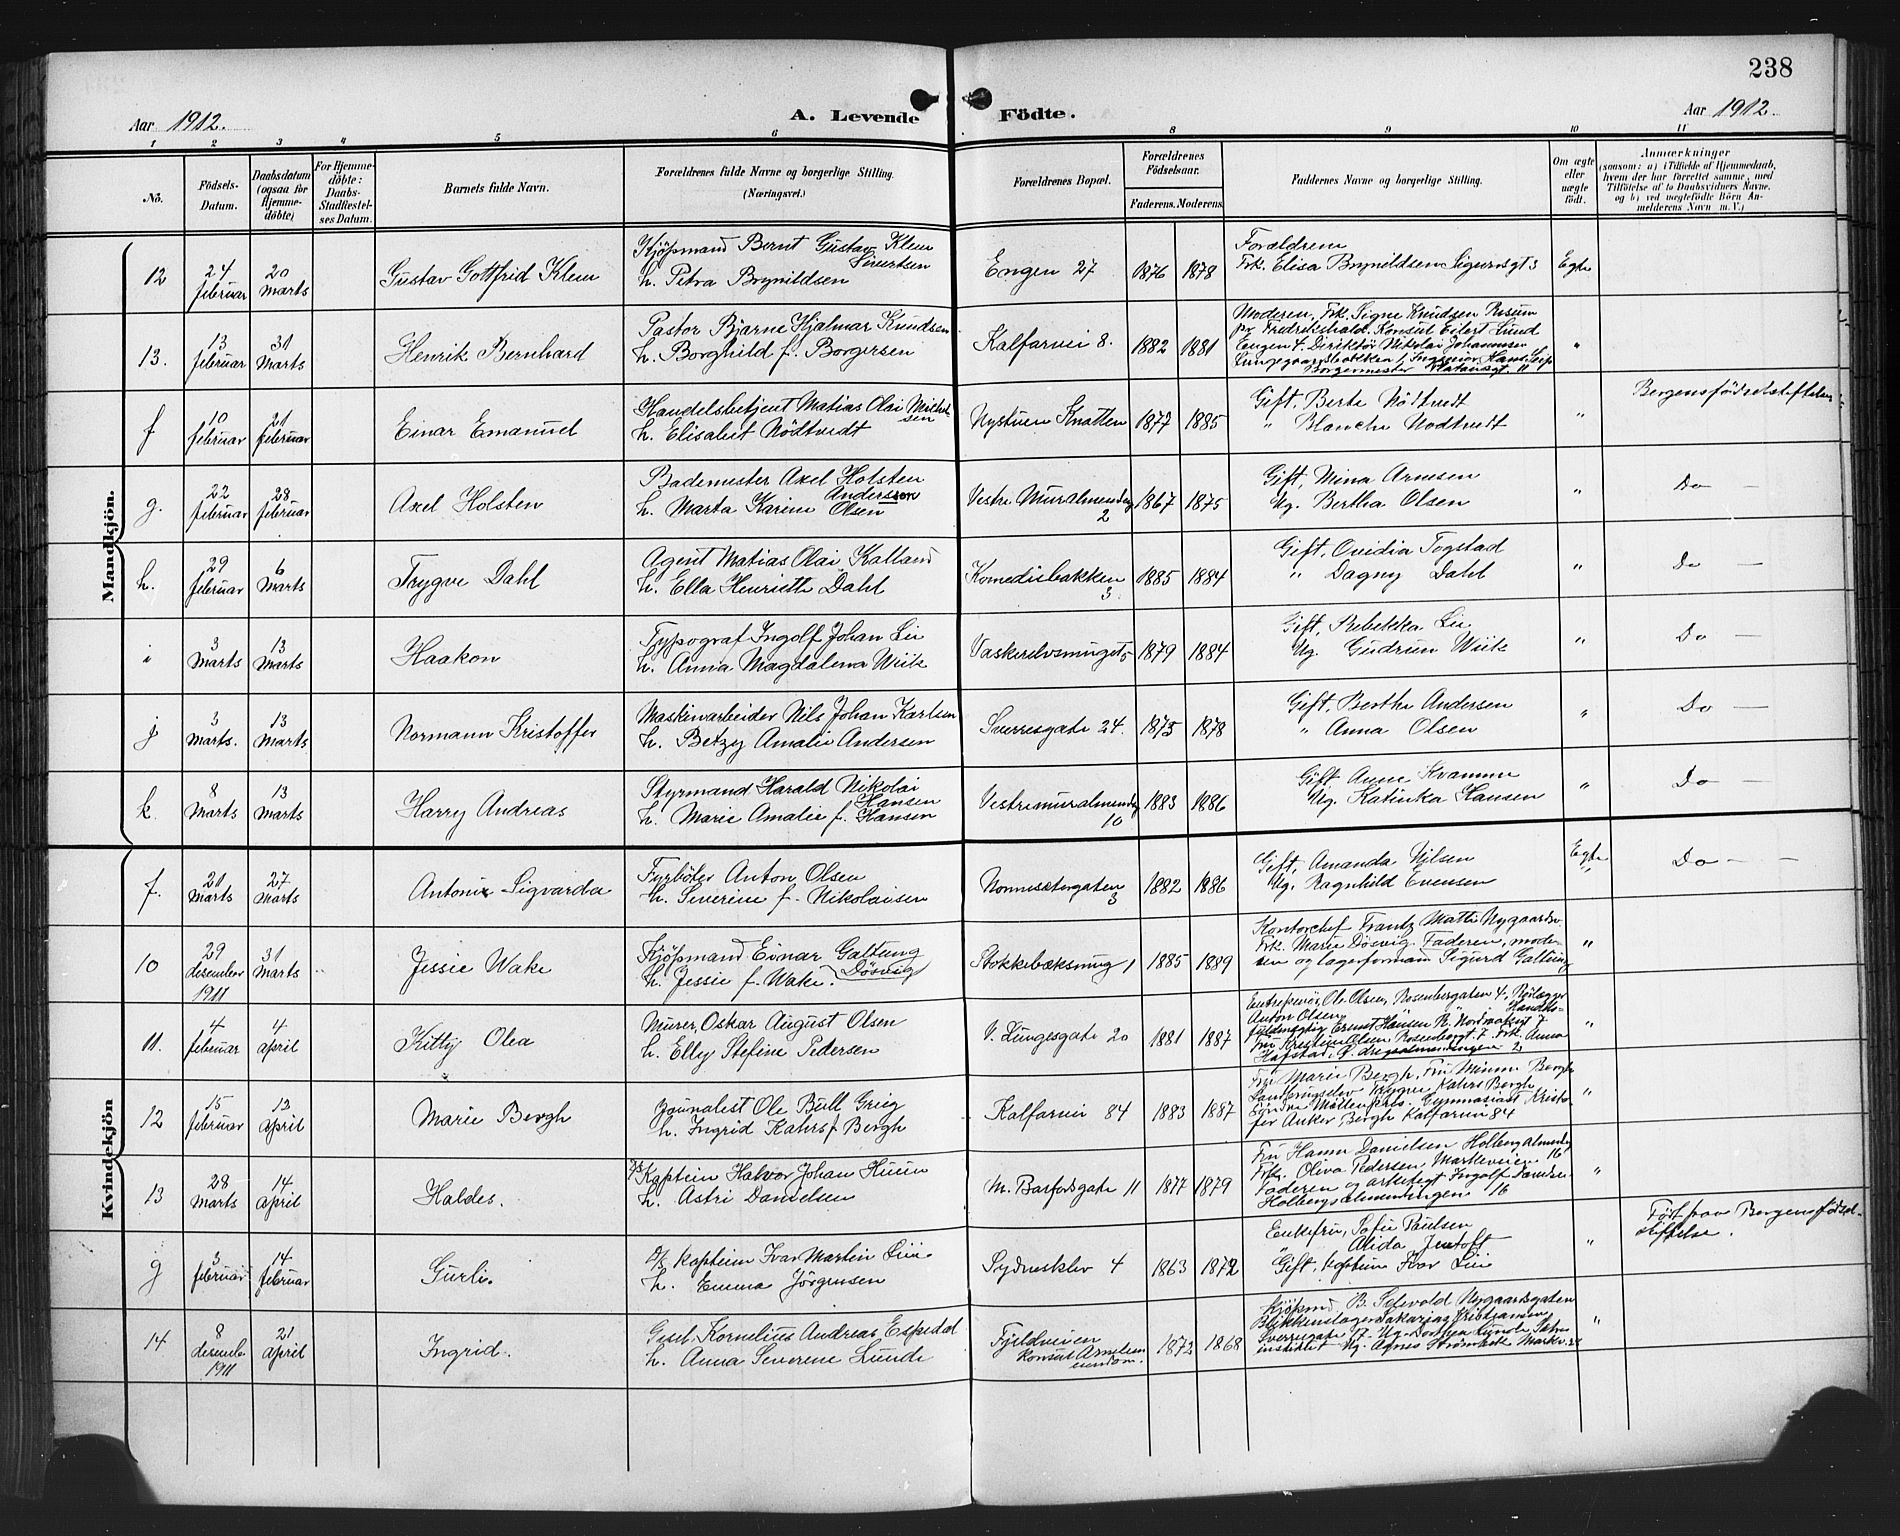 238
Aar 1912. A. Levende Födte. Aar 1912.
1 2 3 4 5 6 8 9 10 11
No.
Födsels-Datum.
Daabsdatum (ogsaa for Hjemme-döbte)
For Hjemme-döbte: Daabs-Stadfæstel-ses Datum.
Barnets fulde Navn.
Forældrenes fulde Navne og borgerlige Stilling. (Næringsvei.)
Forældrenes Bopæl.
Forældrenes Födselsaar.
Faderens. Moderens.
Faddernes Navne og borgerlige Stilling.
Om ægte eller uægte födt.
Anmærkninger
(saasom: a) i Tilfælde af Hjemmedaab,
hvem der har forrettet samme, med
Tilföielse af to Daabsvidners Navne,
og b) ved uægtefödte Börn An-
melderens Navn m. V.)
Mandkjön.
12 24 februar 20 Marts Gustav Gottfrid Klem
Kjöpmand Bernt Gustav Klem Sivertsen
h. Petra Brynildsen
Engen 27 1876 1878
Forældrene
Frk. Elisa Brynildsen Sigurdsgt 3 Egte
13. 13 februar 31 Marts Henrik Bernhard
Pastor Bjarne Hjalmar Knudsen
h. Borghild f. Borgersen
Kalfarvei 8. 1882 1881
Moderen, Frk. Signe Knudsen Risum
pr Fredrikshald. Konsul Eilert Lund
Engen 4. Direktör Nikolai Johannsen
Lungegaardsbakken 1, Ingeniör Hans
Borgermester Platousgt. 11 "
f 10 februar 21 februar Einar Emanuel
Handelsbetjent Matias Olai
h. Elisabet Nödtvedt
Nystuen Knatten 1877 1885
Gift, Berte Nödtvedt
" Blanche Nodtvedt " Bergensfödselstiftelse
g. 22 februar 28 februar Axel Holsten
Bademester Axel Holsten Anderssen
h. Marta Karine Olsen
Vestre Muralmendg 2 1867 1875
Gift, Mina Arnesen
Ug. Bertha Olsen " Do —
h. 29 februar 6 Marts Trygve Dahl
Agent Matias Olai Kalland
h. Ella Henriette Dahl
Komediebakken 3 1885 1884
Gift, Ovidia Togstad
" Dagny Dahl " Do —
i 3 Marts 13 Marts Haakon
Typograf Ingolf Johan Lie
h. Anna Magdalena Wiik
Vaskerelvsmuget 5 1879 1884
Gift, Rebekka Lie
Ug. Gudrun Wiik " Do —
j 3 Marts. 13 Marts Normann Kristoffer
Maskinarbeider Nils Johan Karlsen
h. Betzy Amalie Andersen
Sverresgate 24. 1875 1878
Gift, Berthe Andersen
" Anna Olsen " Do —
k. 8 Marts 13 Marts Harry Andreas
Styrmand Harald Nikolai Hansen
h. Marie Amalie f. Hansen
Vestremuralmendg 10 1883 1886
Gift Anne Kvamme
Ug. Katinka Hansen " Do —
Kvindekjön
f. 21 Marts 27 Marts Antonie Sigvarda
Fyrböter Anton Olsen
h. Severine f. Nikolaisen
Nonnesetergaten 3 1882 1886
Gift, Amanda Nilsen
Ug. Ragnhild Evensen Egte " Do — —
10 29 desember 1911 31 Marts Jessie Wake
Kjöpmand Einar Galtung
h. Jessie f. Wake. Dösvig
Stokkebæksmug 1 1885 1889
Kontorchef Frantz Mathi Nygaardsv
Frk. Marie Dösvig. Faderen, mode-
ren og lagerformann Sigurd Galtung "
11. 4 februar 4 april Kitty Olea
Murer, Oskar August Olsen
h. Elly Stefine Pedersen
V. Lungegate 20 1881 1887
Entreprenör, Ole Olsen, Rosenbergaten 4, Rörlægger
Anton Olsen, Handels-
fuldmægtig Ernst Hansen N. Nordmakvt 7
Fru Kristine Olsen Rosenbergt. 7 Frk. Anna
Hafstad, 2 "
12 15 februar 13 april Marie Bergh
Journalist Ole Bull Grieg
h. Ingrid Kahrs f. Bergh
Kalfarvei 84 1883 1887
Fru Marie Bergh, Fru Minna Bergh
Landbrugselev Trygve Kahrs Bergh
Söndre Möllenpris. Gymnasiast Kristo-
fer Anker Bergh Kalfarvei 84 "
13 28 Marts 14 april Haldes.
Kaptein Halvor Johan Huun
h. Astri Danielsen
M. Barfodsgate 11 1877 1879
Fru Hanna Danielsen Holbergalmendg
Frk. Oliva Pedersen, Markeveien 16
Faderen og arkitekt Ingolf Danielsen
Holbergsalmendingen 16 "
g 3 februar 14 februar Gurli.
D/S Kaptein Ivar Martin Lie
h. Emma Jörgensen
Sydneskleve 4 1863 1872
Enkefru, Sofie Paulsen
" Alida Jentoft
Gift, kaptein Ivar Lie " Född paa Bergensfödsels-
stiftelse.
14 8 desemb. 1911 21 april Ingrid.
Gesel. Kornelius Andreas Espedal
h. Anna Severene Lunde
Fjeldveien
Konsul eiendom. 1872 1868
Kjöpmd. B. Selvold Nygaardsgaten
Blikkenslager Sakarias Kristiansen
Sverresgate 7. Ug. Dorthea Lunde,
institut Ug. Agnes Strömbak Markv. 25 "